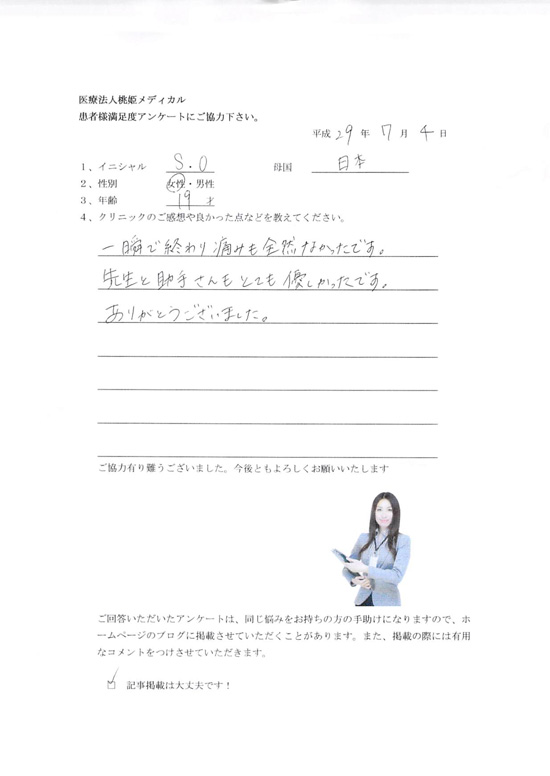 医療法人桃姫メディカル
患者様満足度アンケートにご協力下さい。
平成 29 年 7 月 4 日
1、イニシャル S.O 母国 日本
2、性別 女性・男性
3、年齢 19 才
4、クリニックのご感想や良かった点などを教えてください。
一瞬で終わり痛みも全然なかったです。
先生と助手さんもとても優しかったです。
ありがとうございました。
ご協力有り難うございました。今後ともよろしくお願いいたします
ご回答いただいたアンケートは、同じ悩みをお持ちの方の手助けになりますので、ホ
ームページのブログに掲載させていただくことがあります。また、掲載の際には有用
なコメントをつけさせていただきます。
記事掲載は大丈夫です！